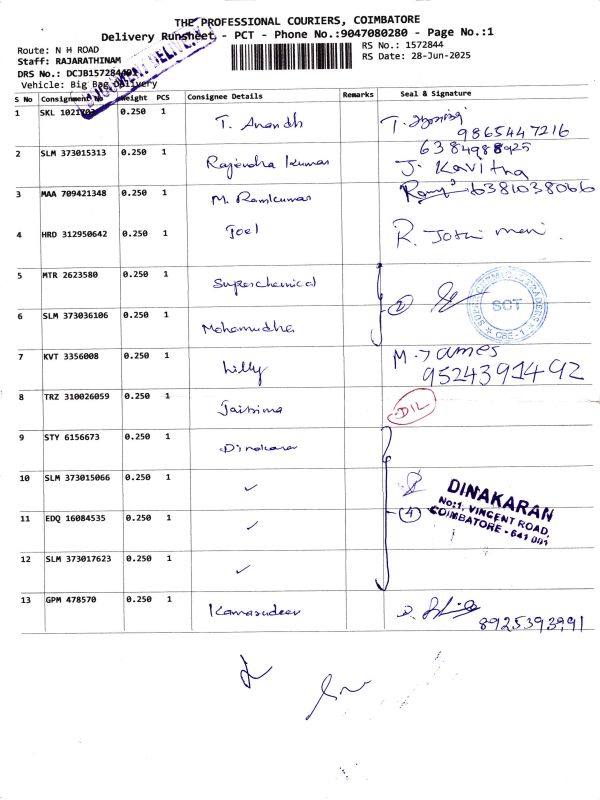 THE PROFESSIONAL COURIERS, COIMBATORE
Delivery Runsheet - PCT - Phone No.:9047080280 - Page No.:1
Route: N H ROAD
RS No.: 1572844
Staff: RAJARATHINAM
RS Date: 28-Jun-2025
DRS No.: DCJB157284
Vehicle: Big Bag Delivery
S No Consignment No Weight PCS Consignee Details Remarks Seal & Signature
1 SKL 0.250 1 T. Anandh
9865447216
2 SLM 373015313 0.250 1 Rajendra kumar 6384988925
J. Kavitha
3 MAA 709421348 0.250 1 M. Ramkumar 6381038066
4 HRD 312950642 0.250 1 Joel R. Joshi mani.
5 MTR 2623580 0.250 1 Superchemical
2
SCT
CBE-1
6 SLM 373036106 0.250 1 Mohamudha
7 KVT 3356008 0.250 1 Lilly M. James
9524391492
8 TRZ 310026059 0.250 1 DIL
9 STY 6156673 0.250 1 Dinakaran
10 SLM 373015066 0.250 1 ✓
DINAKARAN
No:1, VINCENT ROAD,
COIMBATORE - 641 001
11 EDQ 16084535 0.250 1 ✓ 4
12 SLM 373017623 0.250 1 ✓
13 GPM 478570 0.250 1
8925393991